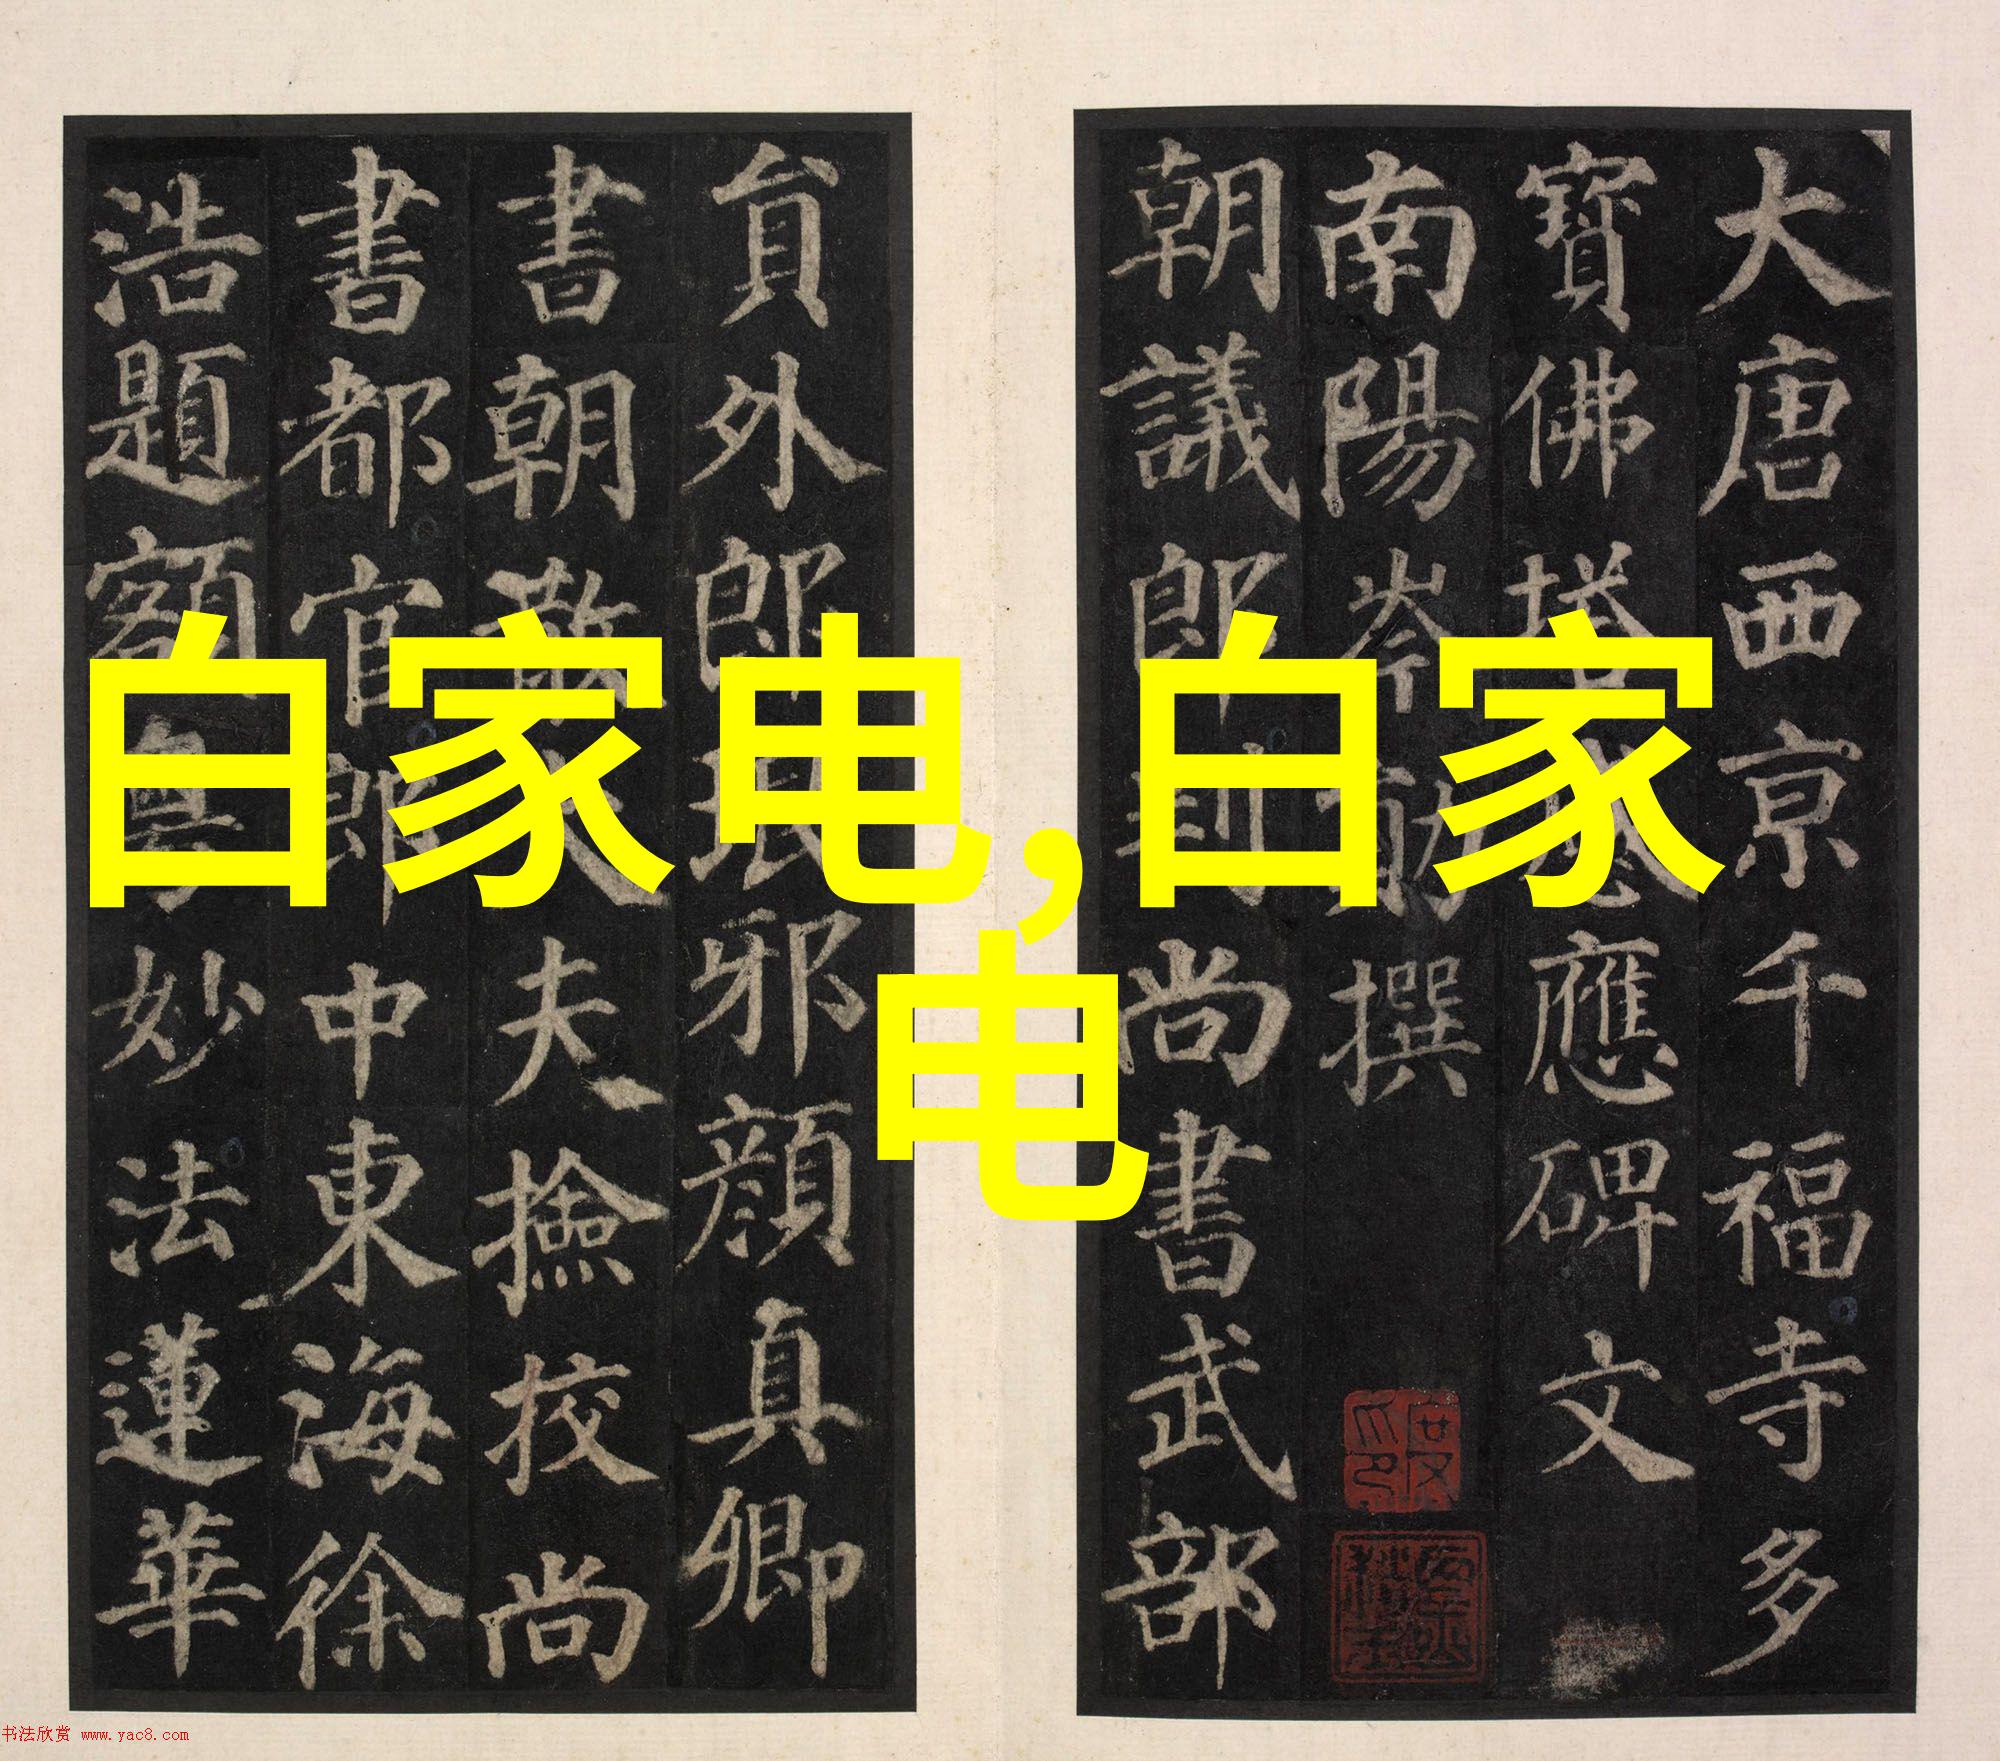 白家电,白家
电
大唐西京千福寺多
寶佛塔感應碑文
南陽岑勛撰
朝議郎判尚書武部
貟外郎琅邪顏真卿
書朝散大夫撿校尚
書都官郎中東海徐
浩題額粤妙法蓮華
书法欣赏 www.yac8.com